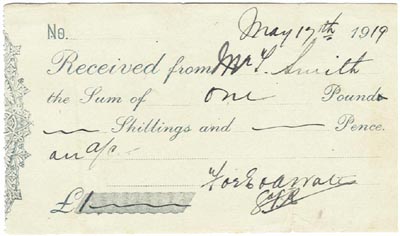 May 17th 1919
No.
Received from Mr T. Smith
the Sum of one Pound
Shillings and Pence.
on a/c
For
£1